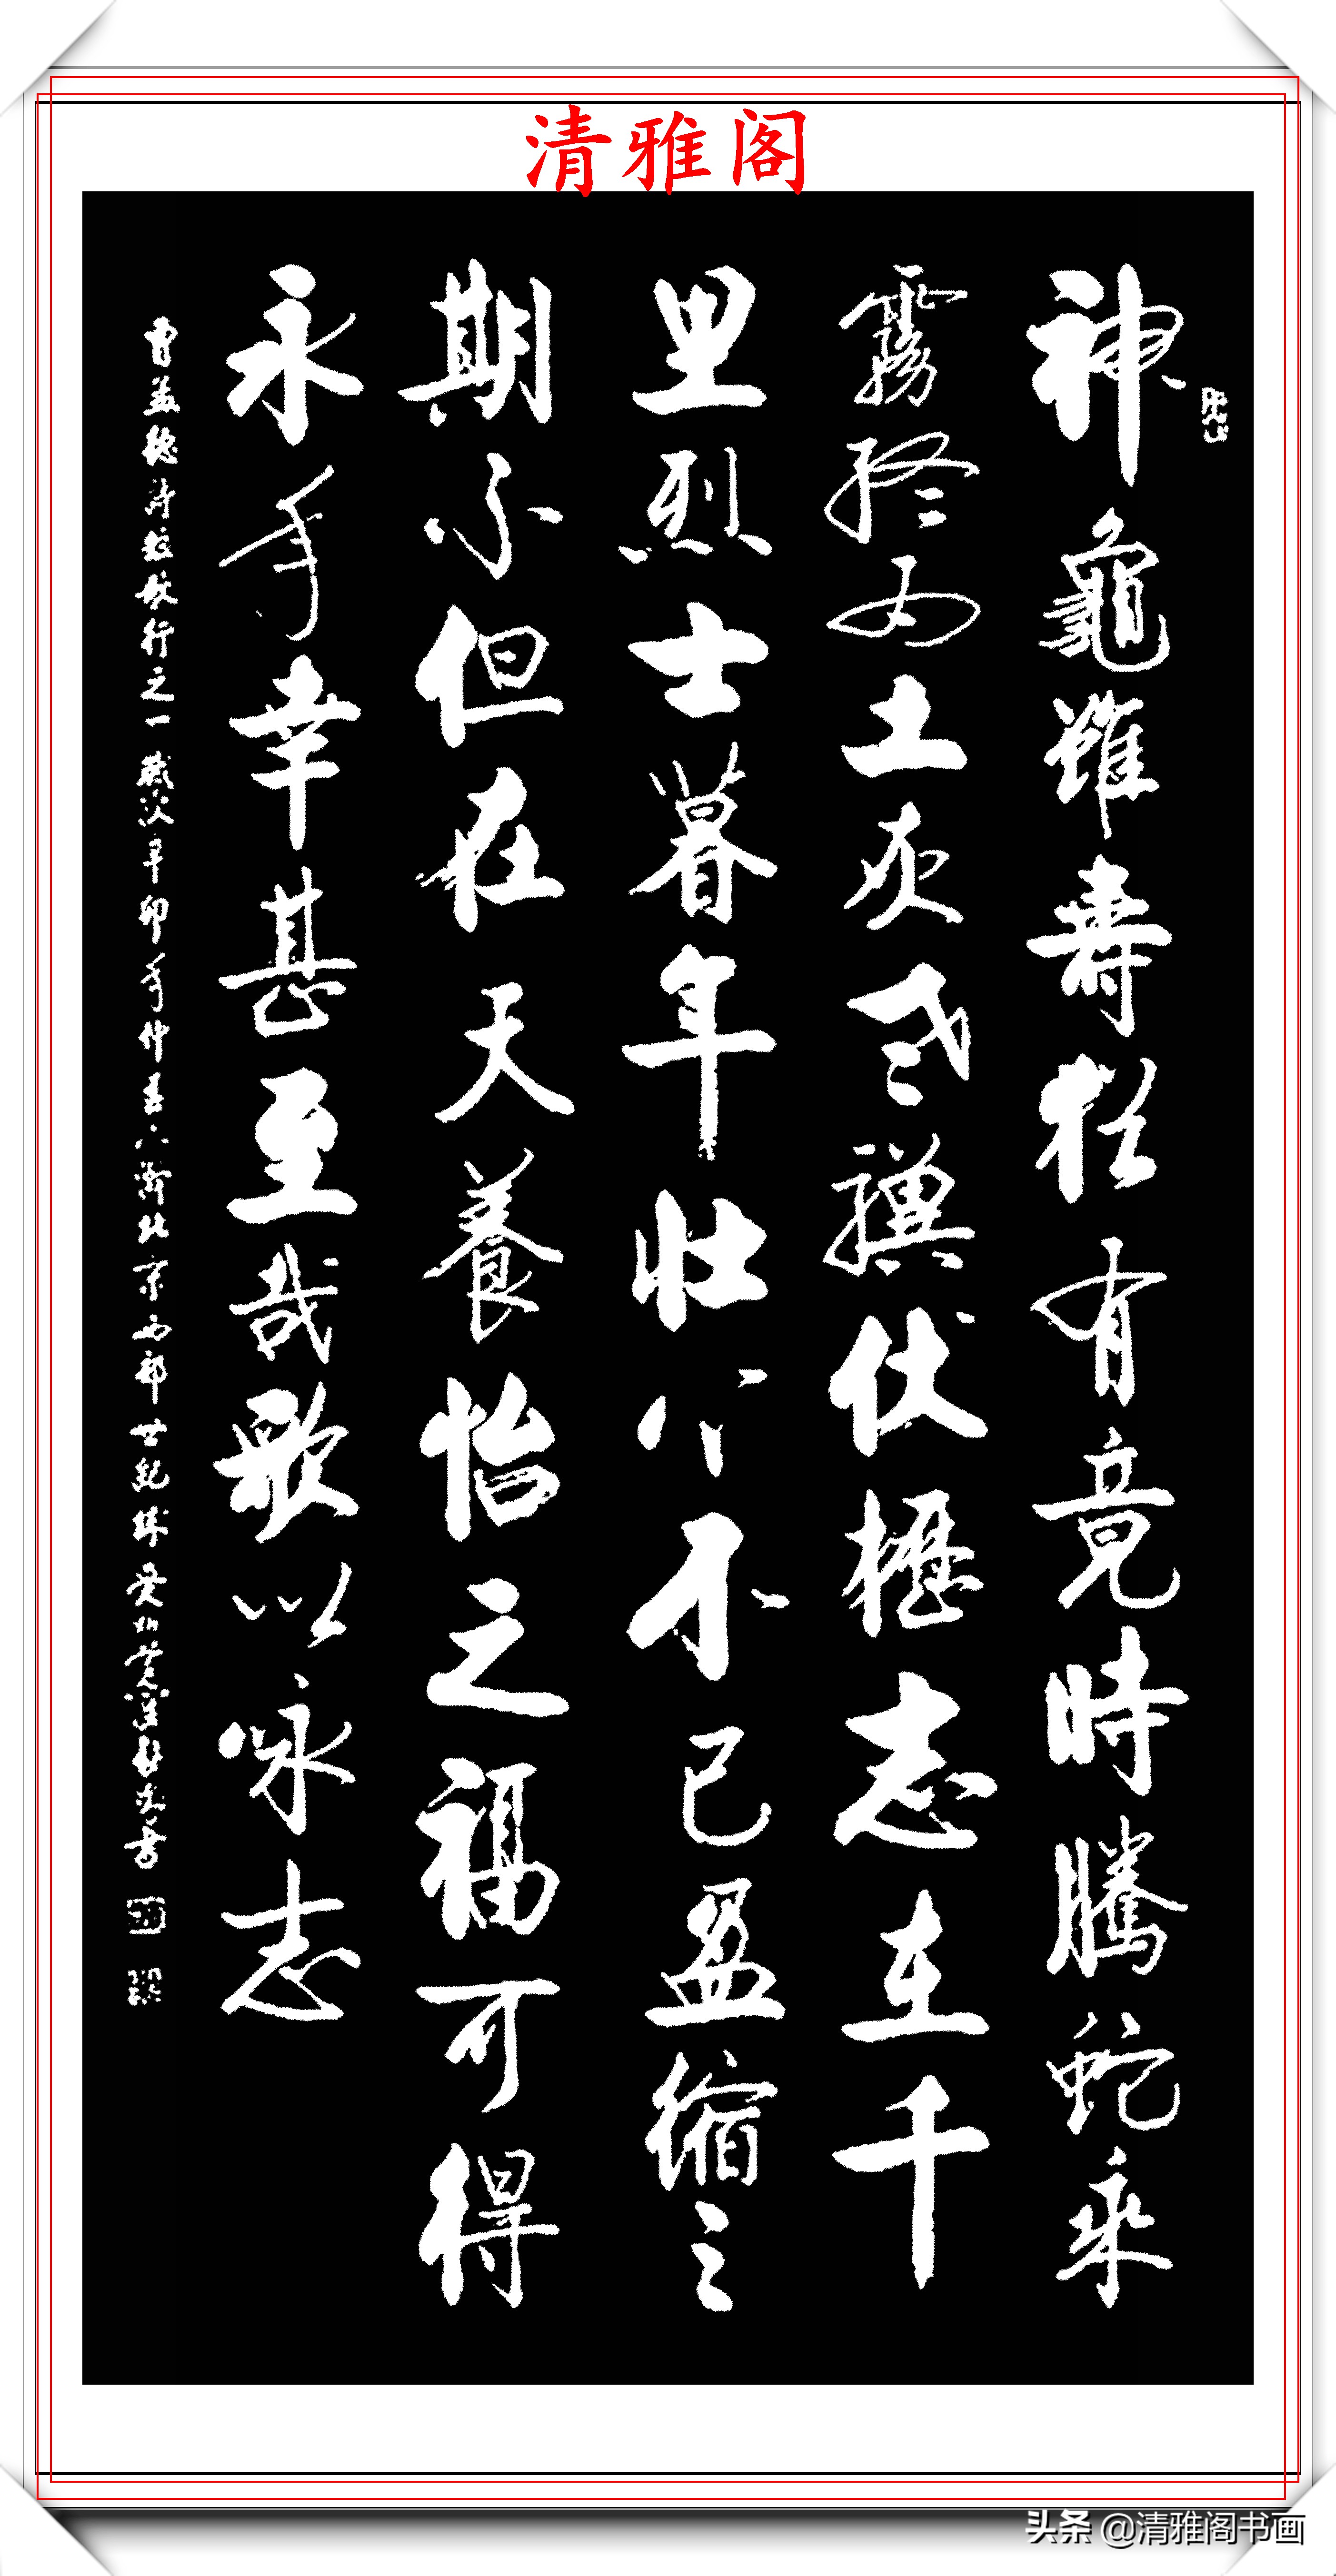 清雅阁
神龜雖壽猶有竟時騰蛇乘
霧終為土灰老驥伏櫪志在千
里烈士暮年壯心不已盈縮之
期不但在天養怡之福可得
永年幸甚至哉歌以咏志
曹孟德詩短歌行之一歲次辛卯年仲春北京西部世紀城書
头条 @清雅阁书画